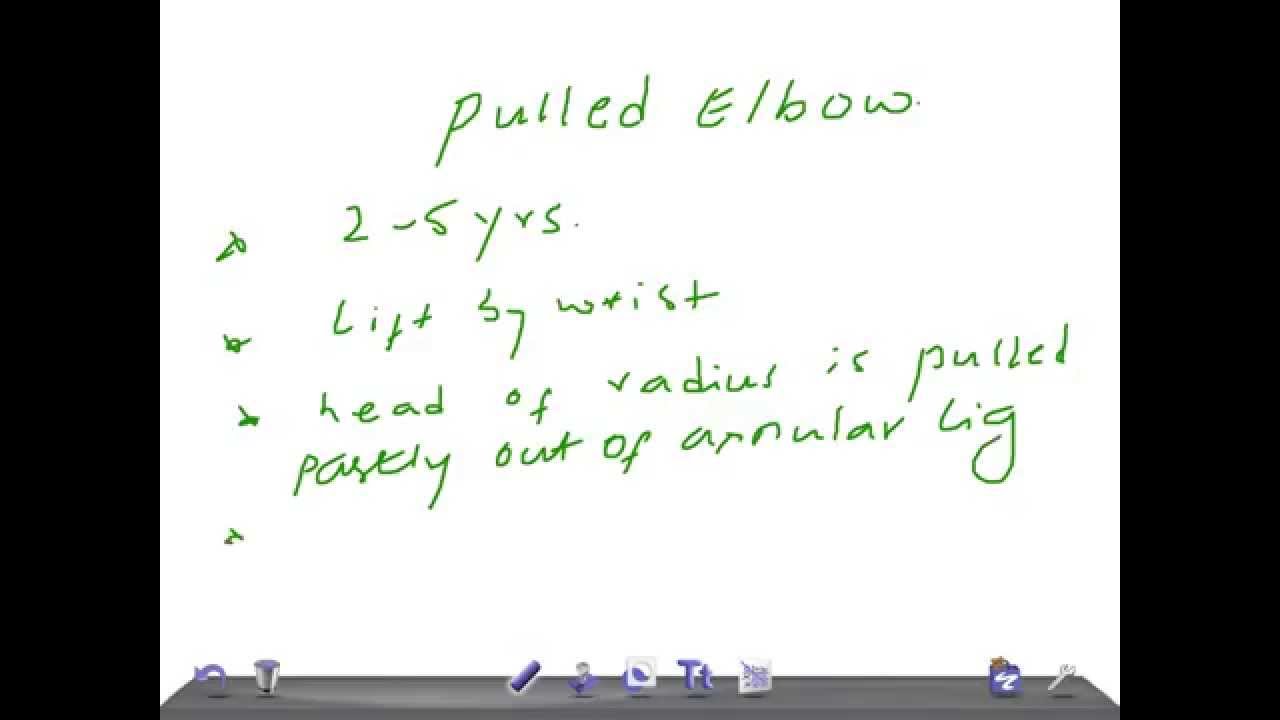 pulled Elbow.
2-5 yrs.
Lift by wrist
head of radius is pulled
partly out of annular lig
Tt